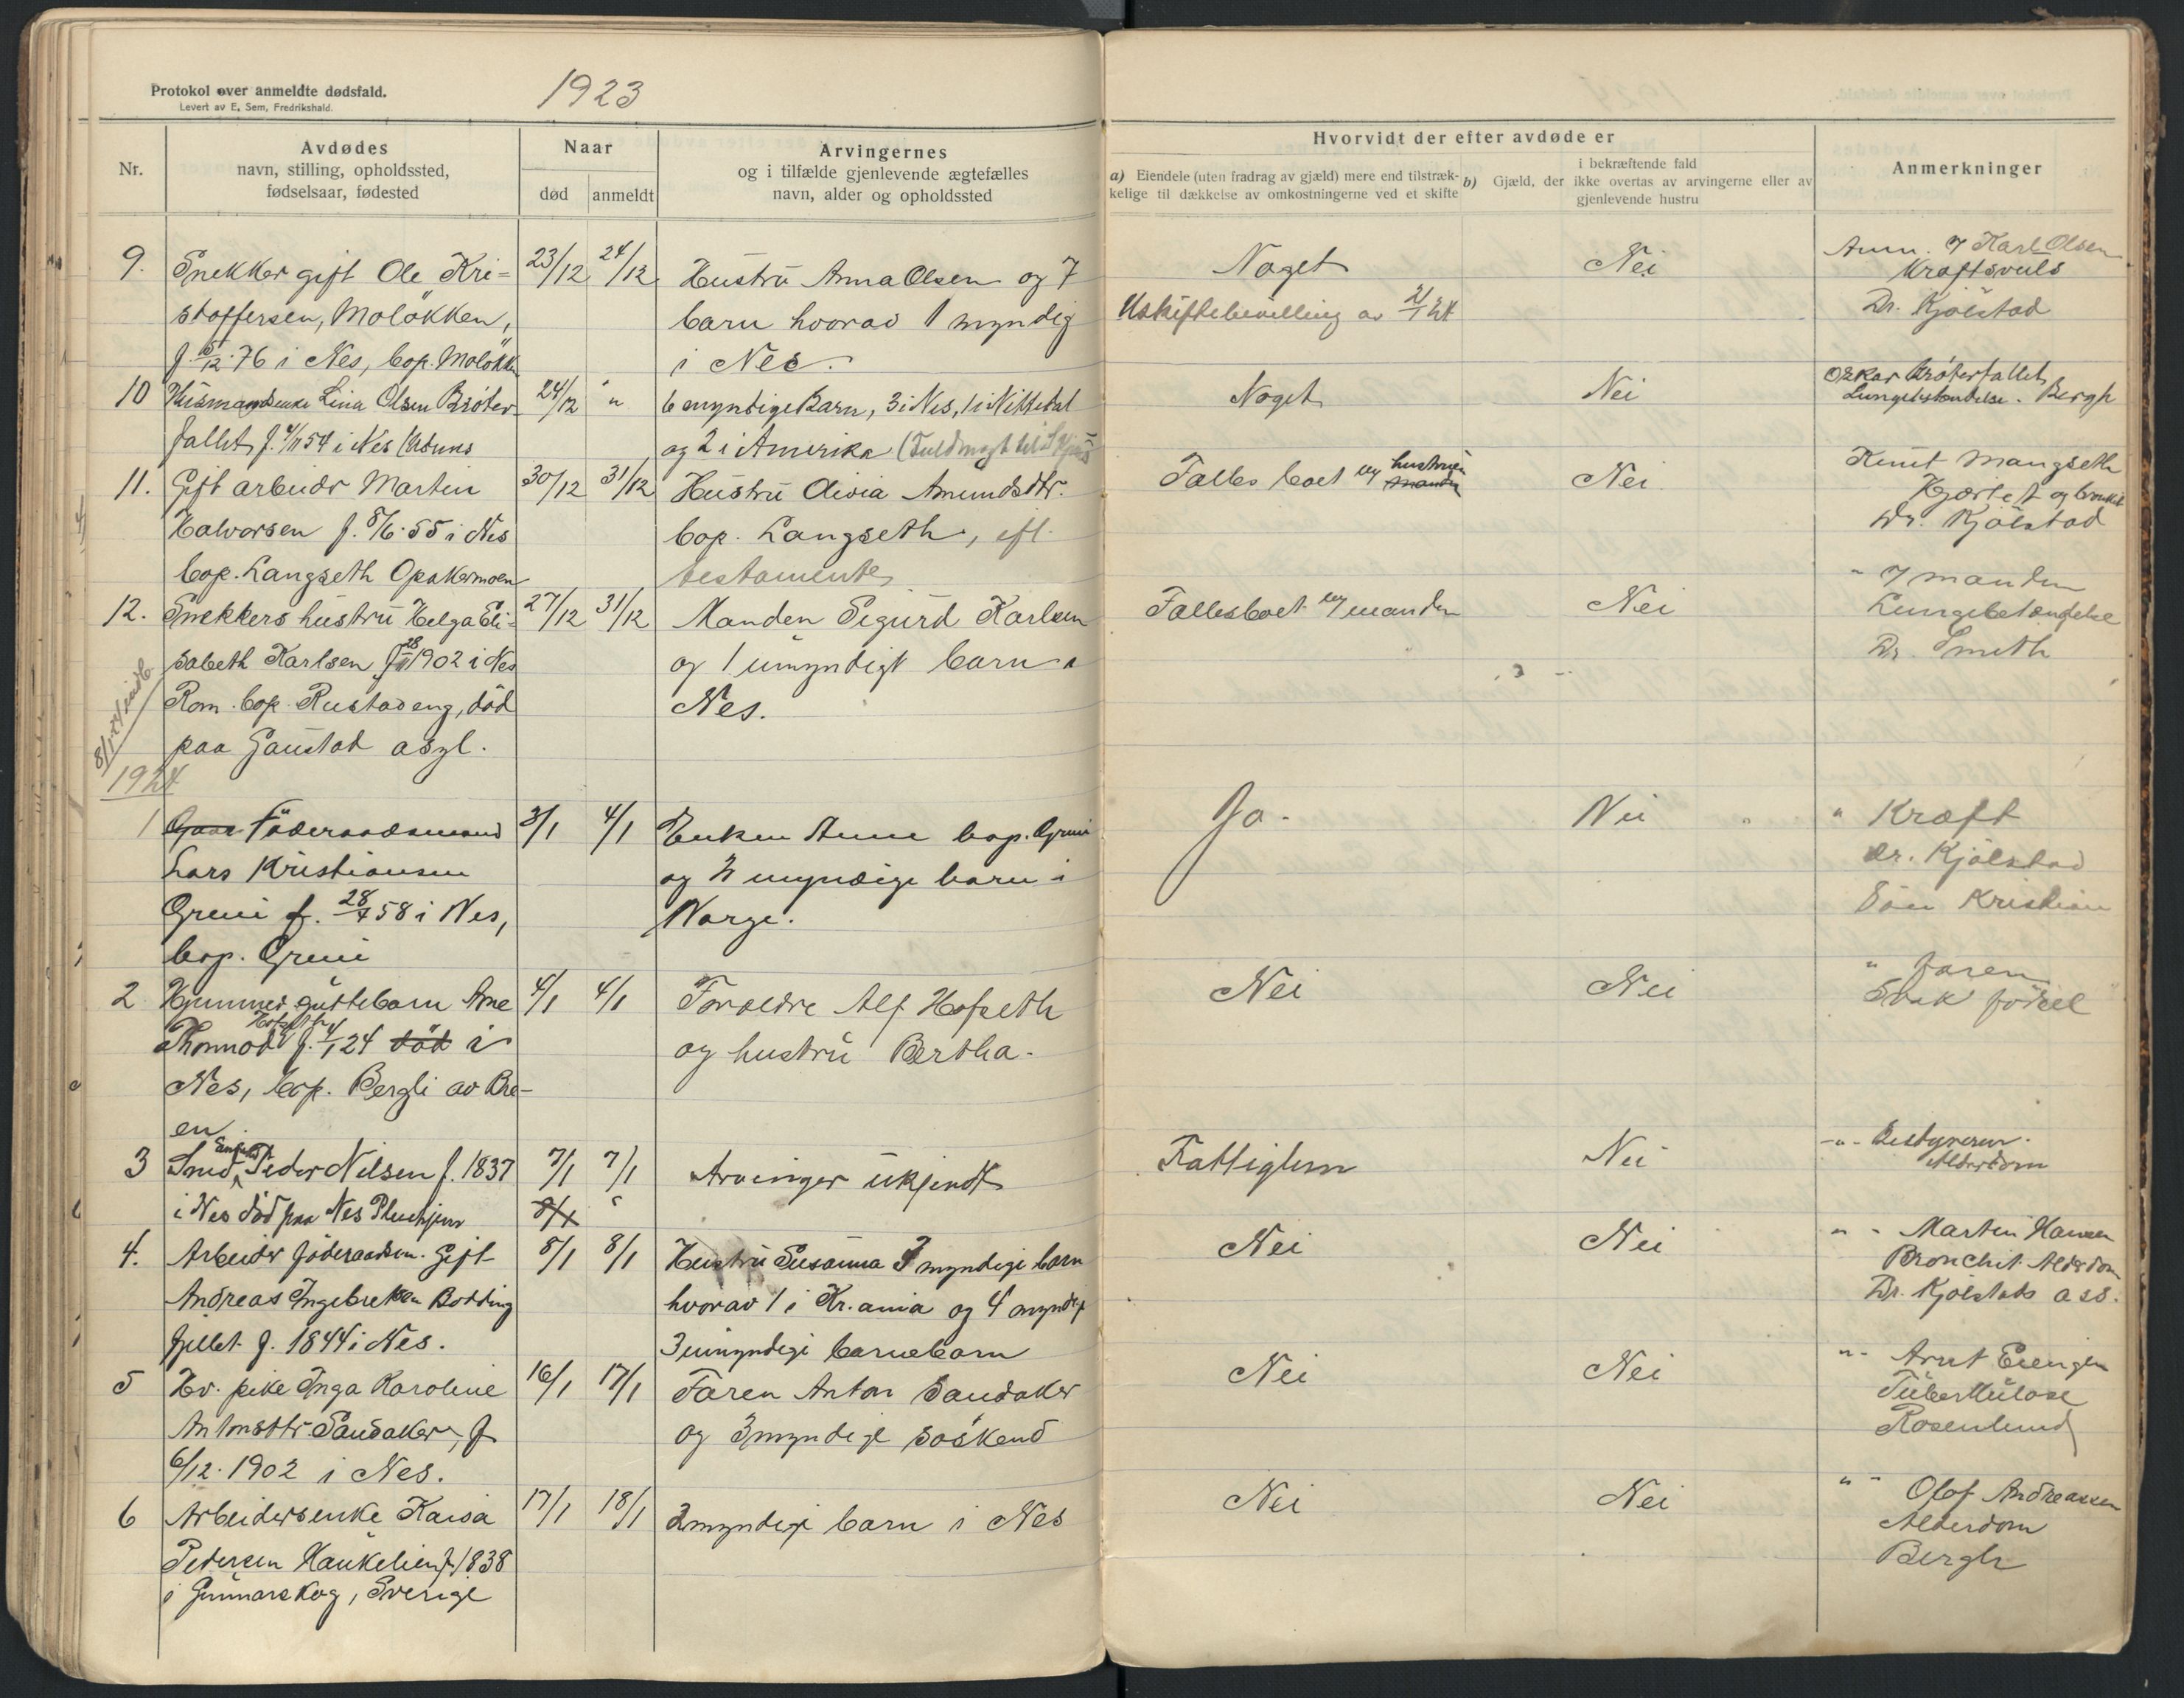 Protokol over anmeldte dødsfald.
Levert av E. Sem, Fredrikshald.
1923
Nr.
Avdødes
navn, stilling, opholdssted,
fødselsaar, fødested
Naar
død
anmeldt
Arvingernes
og i tilfælde gjenlevende ægtefælles
navn, alder og opholdssted
Hvorvidt der efter avdøde er
a) Eiendele (uten fradrag av gjæld) mere end tilstræk-
kelige til dækkelse av omkostningerne ved et skifte
i bekræftende fald
b) Gjæld, der ikke overtas av arvingerne eller av
gjenlevende hustru
Anmerkninger
9.
Snekker gift Ole Kri-
stoffersen, Moløkken,
76 i Nes, bop. Moløkk
23/12
24/12
Hustru Anna Olsen og 7
barn hvorav 1 myndig
i Nes.
Noget
Uskiftebevilling av 24
Nei
Anm. Karl Olsen
Kræftsvuls
Dr. Kjølstad
10
Lina Olsen Brøter-
fallet f. 54 i Nes
24/12
"
6 myndige Barn, 3 i Nes, 1 i Nittedal
og 2 i Amerika
Noget
Nei
Oskar Brøterfallet
Bergh
11.
Gift arbeider Martin
Halvorsen f. 8/6. 55 i Nes
bop. Langseth Opakermoen
30/12
31/12
Hustru Amundsdtr.
bop. Langseth, efl.
testamente
Fælles boet hustruen
manden
Nei
Knut Mangseth
Dr. Kjølstad
12.
Snekkers hustru Helga Eli-
sabeth Karlsen f. 1902 i Nes
Rom. bop. Rustadeng, død
paa Gaustad asyl.
27/12
31/12
Manden Sigurd Karlsen
og 1 umyndigt barn i
Nes.
Fællesboet manden
Nei
" manden
Lungebetændelse
Dr. Smith
1924
1
Føderaadsmand
Lars Kristiansen
Greni f. 58 i Nes,
bop. Greni
3/1
4/1
Enken Anne bop. Greni
og myndige barn i
Norge.
Ja.
Nei
" Kræft
dr. Kjølstad
Søn Kristian
2
guttebarn Arne
Thormod f. 4/1 24 død i
Nes, bop. Bergli av Bre-
en
4/1
4/1
Forældre Alf Hofseth
og hustru Bertha.
Nei
Nei
" faren
Svak fødsel
3
Smed, Peder Nilsen f. 1837
i Nes død paa Nes Pleiehjem
7/1
7/1
8/1
"
Arvinger ukjendt
Fattiglem
Nei
-"- Bestyreren.
Alderdom
4.
Arbeider føderaadsm. Gift
Andreas Ingebretsen Bodding
fjellet f. 1844 i Nes.
8/1
8/1
Hustru Susanna myndige barn
hvorav 1 i Kr.ania og 4 myndige
3 umyndige barnebarn
Nei
Nei
" " Martin Hansen
Bronchit. Alderdom
Dr. Kjølstads ass.
5
Ev. pike Inga Karoline
Antonsdtr. Sandaker, f
6/12. 1902 i Nes.
16/1
17/1
Faren Anton Sandaker
og 3 myndige søskend
Nei
Nei
"- Arnt
Tuberkulose
Rosenlund
6
Arbeidersenke Kaisa
Pedersen Haukelien f. 1838
i Gunnarskog, Sverige
17/1
18/1
2 myndige barn i Nes
Nei
Nei
" " Olof Andreassen
Alderdom
Bergh